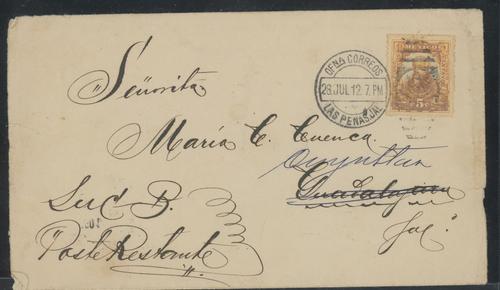 Señorita
María C. Cuenca.
Guadalajara
Jal.
Lerd B.
Poste Restante
OFNA CORREOS
23 JUL 12. 7. PM
LAS PEÑAS, JAL
MEXICO
5 5